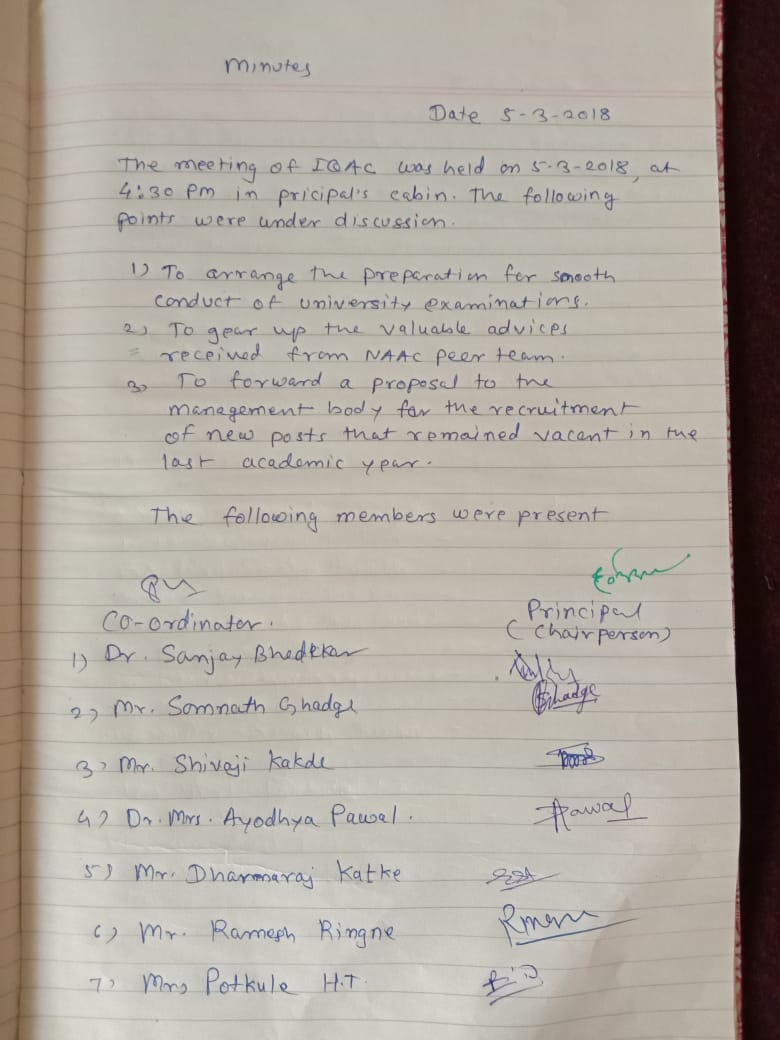 Minutes
Date 5-3-2018
The meeting of IQAC was held on 5-3-2018, at
4:30 PM in pricipal's cabin. The following
points were under discussion.
1) To arrange the preparation for smooth
conduct of university examinations.
2) To gear up the valuable advices
= received from NAAC peer team.
3) To forward a proposal to the
management body for the recruitment
of new posts that remained vacant in the
last academic year.
The following members were present
Co-ordinator.
Principal
(Chairperson)
1) Dr. Sanjay
2) Mr. Somnath Ghadge
Ghadge
3) Mr. Shivaji Kakde
4) Dr. Mrs. Ayodhya Pawal.
Pawal
5) Mr. Dharmaraj Katke
6) Mr. Ramesh Ringne
7) Mrs Potkule H.T.